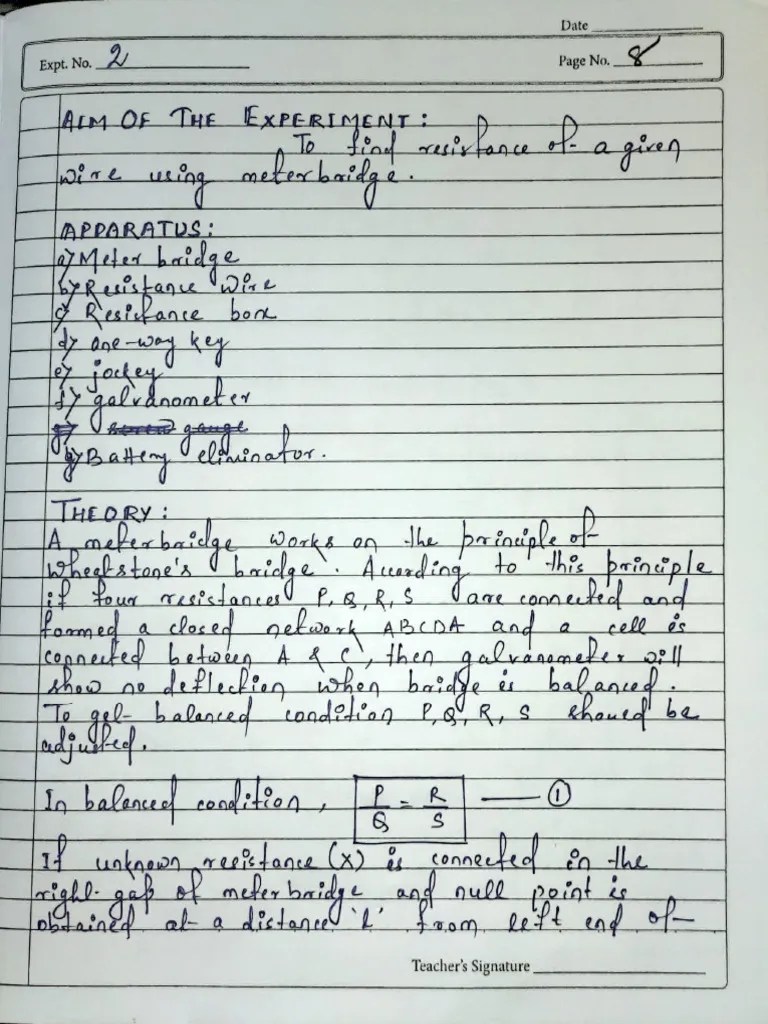 Date
Expt. No. 2
Page No. 8
AIM OF THE EXPERIMENT:
To find resistance of a given
wire using meterbridge.
APPARATUS:
a) Meter bridge
b) Resistance wire
c) Resistance box
d) one-way key
e) jockey
f) galvanometer
g) screw gauge
g) Battery eliminator.
THEORY:
A meterbridge works on the principle of
wheatstone's bridge. According to this principle
if four resistances P, Q, R, S are connected and
formed a closed network ABCDA and a cell is
connected between A & C, then galvanometer will
show no deflection when bridge is balanced.
To get balanced condition P, Q, R, S should be
adjusted.
In balanced condition, P/Q = R/S —— ①
If unknown resistance (X) is connected in the
right gap of meterbridge and null point is
obtained at a distance 'l' from left end of
Teacher's Signature